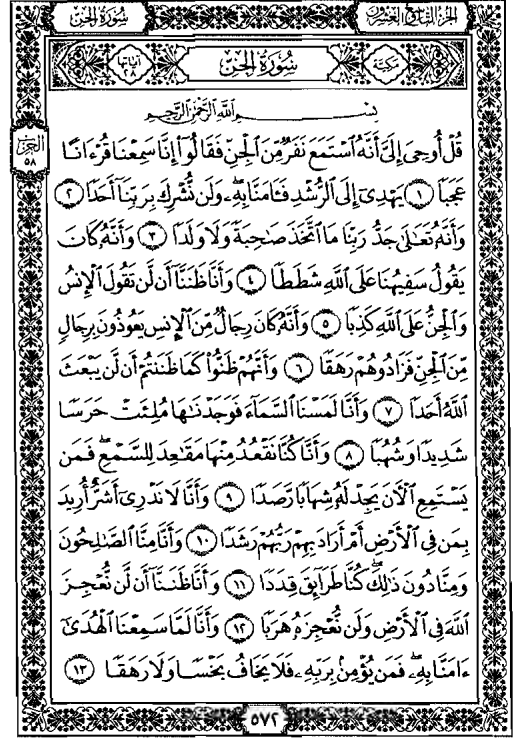 الجزء التاسع والعشرون
سُورَةُ الجِنّ
مَكِّيَّة
سُورَةُ الجِنّ
آيَاتُهَا ٢٨
بِسْمِ اللَّهِ الرَّحْمَٰنِ الرَّحِيمِ
الحِزْب ٥٨
قُلْ أُوحِىَ إِلَىَّ أَنَّهُ ٱسْتَمَعَ نَفَرٌ مِّنَ ٱلْجِنِّ فَقَالُوٓا۟ إِنَّا سَمِعْنَا قُرْءَانًا
عَجَبًا ١ يَهْدِىٓ إِلَى ٱلرُّشْدِ فَـَٔامَنَّا بِهِۦ وَلَن نُّشْرِكَ بِرَبِّنَآ أَحَدًا ٢
وَأَنَّهُۥ تَعَٰلَىٰ جَدُّ رَبِّنَا مَا ٱتَّخَذَ صَٰحِبَةً وَلَا وَلَدًا ٣ وَأَنَّهُۥ كَانَ
يَقُولُ سَفِيهُنَا عَلَى ٱللَّهِ شَطَطًا ٤ وَأَنَّا ظَنَنَّآ أَن لَّن تَقُولَ ٱلْإِنسُ
وَٱلْجِنُّ عَلَى ٱللَّهِ كَذِبًا ٥ وَأَنَّهُۥ كَانَ رِجَالٌ مِّنَ ٱلْإِنسِ يَعُوذُونَ بِرِجَالٍ
مِّنَ ٱلْجِنِّ فَزَادُوهُمْ رَهَقًا ٦ وَأَنَّهُمْ ظَنُّوا۟ كَمَا ظَنَنتُمْ أَن لَّن يَبْعَثَ
ٱللَّهُ أَحَدًا ٧ وَأَنَّا لَمَسْنَا ٱلسَّمَآءَ فَوَجَدْنَٰهَا مُلِئَتْ حَرَسًا
شَدِيدًا وَشُهُبًا ٨ وَأَنَّا كُنَّا نَقْعُدُ مِنْهَا مَقَٰعِدَ لِلسَّمْعِ ۖ فَمَن
يَسْتَمِعِ ٱلْـَٔانَ يَجِدْ لَهُۥ شِهَابًا رَّصَدًا ٩ وَأَنَّا لَا نَدْرِىٓ أَشَرٌّ أُرِيدَ
بِمَن فِى ٱلْأَرْضِ أَمْ أَرَادَ بِهِمْ رَبُّهُمْ رَشَدًا ١٠ وَأَنَّا مِنَّا ٱلصَّٰلِحُونَ
وَمِنَّا دُونَ ذَٰلِكَ ۖ كُنَّا طَرَآئِقَ قِدَدًا ١١ وَأَنَّا ظَنَنَّآ أَن لَّن نُّعْجِزَ
ٱللَّهَ فِى ٱلْأَرْضِ وَلَن نُّعْجِزَهُۥ هَرَبًا ١٢ وَأَنَّا لَمَّا سَمِعْنَا ٱلْهُدَىٰٓ
ءَامَنَّا بِهِۦ ۖ فَمَن يُؤْمِنۢ بِرَبِّهِۦ فَلَا يَخَافُ بَخْسًا وَلَا رَهَقًا ١٣
٥٧٢